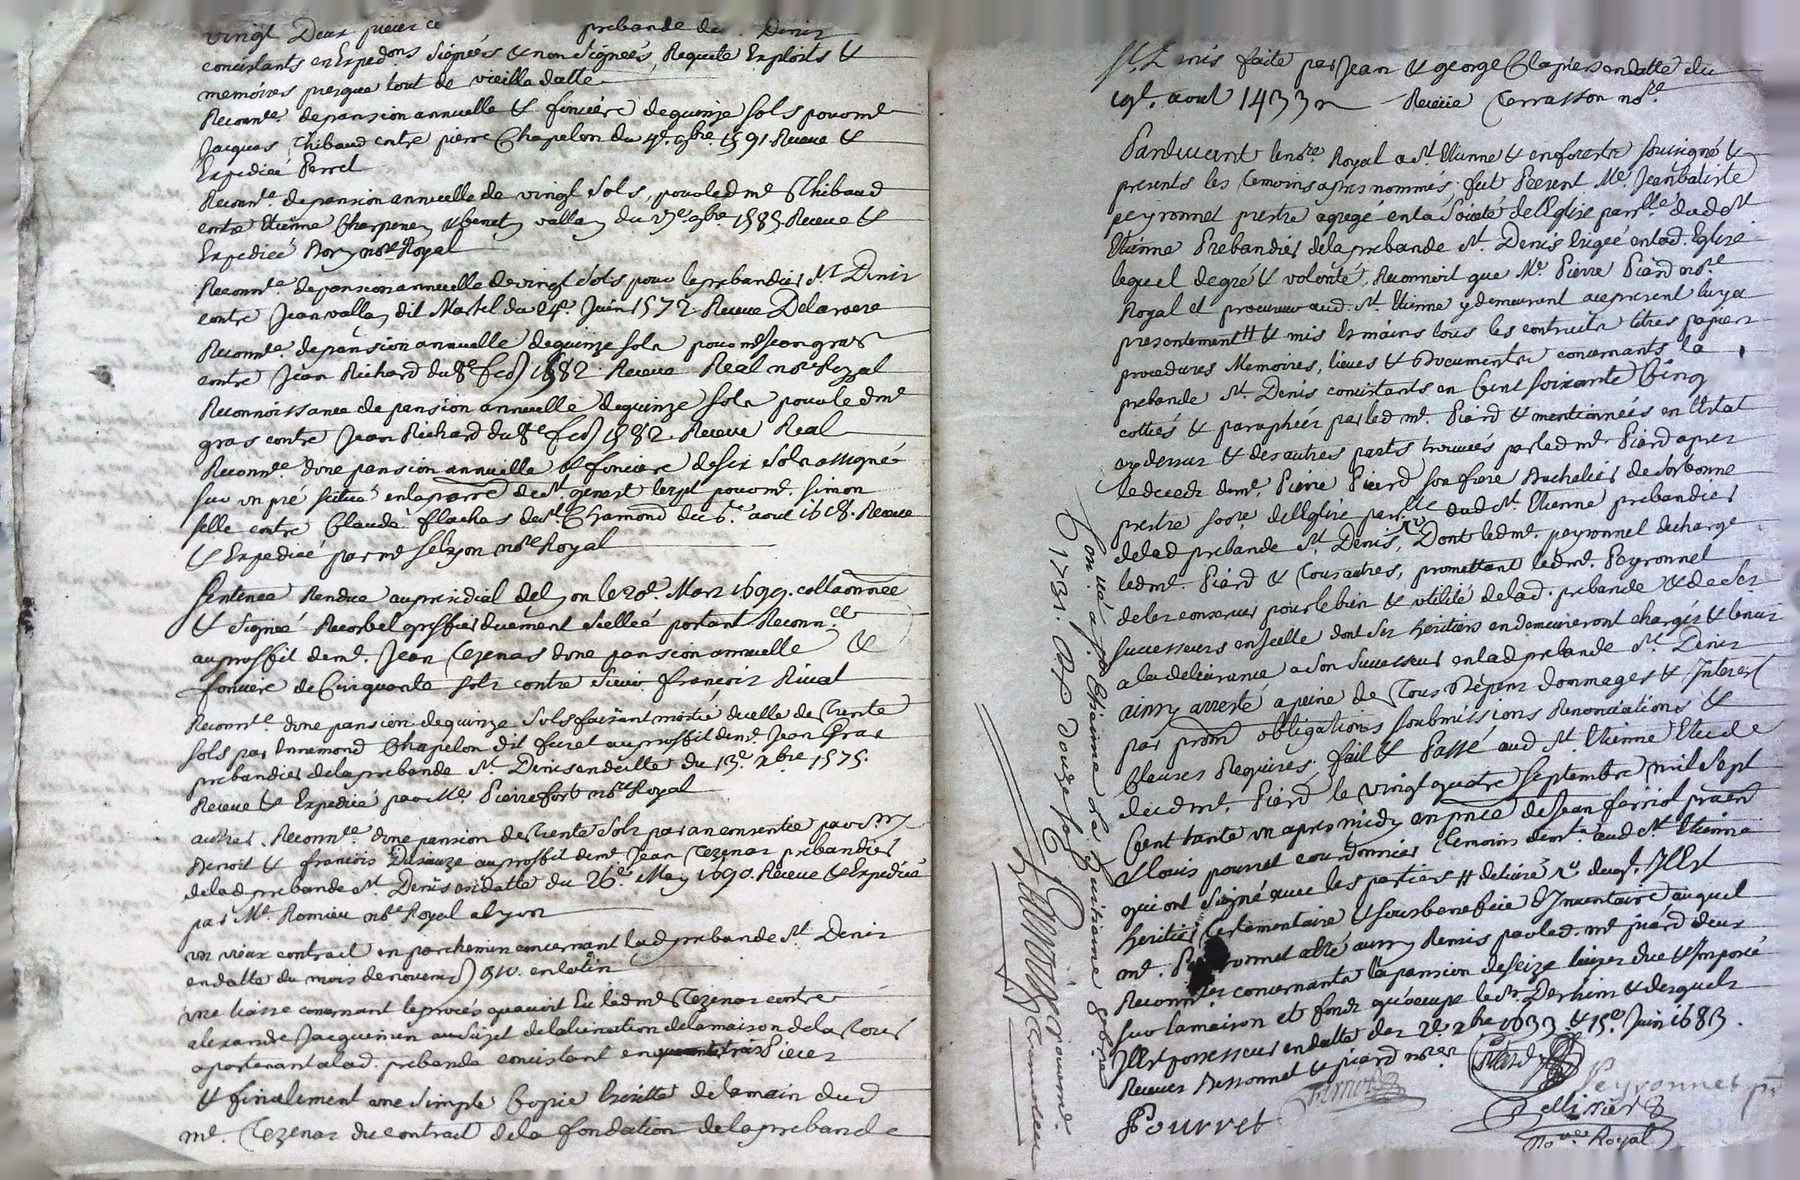 vingt Deux pieces prebande de Denis
concistants en Expedons Signées & non Signées, Requete Exploits &
memoires presque tout de vieille datte
Reconnce. de pansion annuelle & fonciere de quinze sols pour me
Jacques Thibaud contre pierre Chapelon du 4e. 9bre 1591 Receue &
Expediée Perret
Reconnce. de pansion annuelle de vingt sols, pour led me Thibaud
contre Etienne Charpeney & benet vallay du 27e 9bre 1585 Receue &
Expediée nore Royal
Reconnce. de pansion annuelle de vingt sols pour le prebandier St. Denis
contre Jean vallay dit Martel du 24e. Juin 1572 Receue Delaroere
Reconnce. de pansion annuelle de quinze sols pour me Jean gras
contre Jean Richard du 8e feb 1582. Receue Real nore Royal
Reconnoissance de pansion annuelle de quinze sols pour led me
gras contre Jean Richard du 8e feb 1582. Receue Real
Reconnce d'une pansion annuelle & fonciere de six sols assigné
sur un pré scitué en la parre de St. genest lerpt pour me. Simon
selle contre Claude flachas de St. Chamond du 6e. aout 1618. Receue
& Expediée par me nore Royal
Sentence Rendue au presidial de Lyon le 20e. Mars 1699. collationnée
& Signée greffier duement scellée portant Reconnce
au proffit de me. Jean Tezenas d'une pansion annuelle &
fonciere de Cinquante sols contre Sieur françois Rivat
Reconnce d'une pansion de quinze Sols faisant moitié d'icelle de Trente
Sols par Ennemond Chapelon dit furet au proffit de me Jean Gras
prebandier de la prebande St. Denis en datte du 13e. xbre 1575.
Receue & Expediée par Me. Pierrefort nore Royal
autres. Reconnce d'une pansion de Trente Sols par an consentie par Srs
Benoit & françois Dusauze au proffit de me Jean Tezenas prebandier
de lad. prebande St. Denis en datte du 26e. May 1690. Receue & Expediée
par Me. Romieu nore Royal a Lyon
un vieux contrait en parchemin concernant lad prebande St. Denis
en datte du mois de novemb 1510. en latin
une liasse concernant le procés qu'avoit Eu led me Tezenas contre
alexandre Jacquemin au sujet de la de la maison de la Tour
apartenant a lad. prebande concistant en Pieces
& finalement une Simple Copie Ecritte de la main dud
me. Tezenas du contrait de la fondation de la prebande
St. Denis faite par Jean & george Clapier en datte du
19e. avril 1433 Receüe Terrasson nore
Pardevant le nore Royal a St Etienne & en forests soussigné &
presents les Temoins apres nommés. fut Present Me. Jean batiste
peyronnet prestre agregé en la Sosieté de l'Eglise parrlle dud St
Etienne Prebandier de la prebande St. Denis Erigée en lad. Eglise
lequel de gré & volonté, Reconnoit que Me Pierre Piard nore
Royal et procureur aud. St. Etienne y demeurant a ce present luy a
presentement # & mis Es mains tous les contraits titres papiers
procedures Memoires, lieves & Documents concernants la
prebande St. Denis concistants en Cent soixante Cinq
cottés & paraphées par led me. Piard & mentionnées en l'Estat
cy dessus & des autres parts trouvés par led me Piard apres
le deceds de me. Pierre Piard son frere Bachelier de Sorbonne
prestre socre. de l'Eglise parrlle dud St. Etienne prebandier
de lad prebande St. Denis, Dont led me. peyronnet decharge
led me. Piard & Tous autres, promettant led me. Peyronnet
de les conserver pour le bien & utilité de lad. prebande & de ses
successeurs en icelle dont ses heritiers en demeureront chargés & tenus
a la delivrance a Son Successeur en lad prebande St. Denis
ainsy arresté a peine de Tous Dépens dommages & Interest
par prom obligations soubmissions Renonciations &
Clauses Requises. fait & Passé aud St. Etienne Etude
dud me. Piard le vingt quatre Septembre mil Sept
Cent trante un apres midy en pnce de Jean ferriol praen
& Louis pourret cordonnier Temoins demts aud St. Etienne
qui ont signé avec les parties # delivré
heritier Testamentaire & sous benefice d'Inventaire auquel
me. Peyronnet a été aussy Remis par led. me piard deux
Reconnces concernants la pansion de seize livres due & Imposée
sur la maison et fonds qu'occupe le Sr. & desquels
Il est possesseur en datte des 22e xbre 1633 & 15e. Juin 1683.
Receues Bessonnet & piard nores
Piard
Peyronnet pr
Pourret
Pellissier
Nore. Royal
Con. lé a St. Etienne le huitieme 8bre
1731. Reçu douze sols